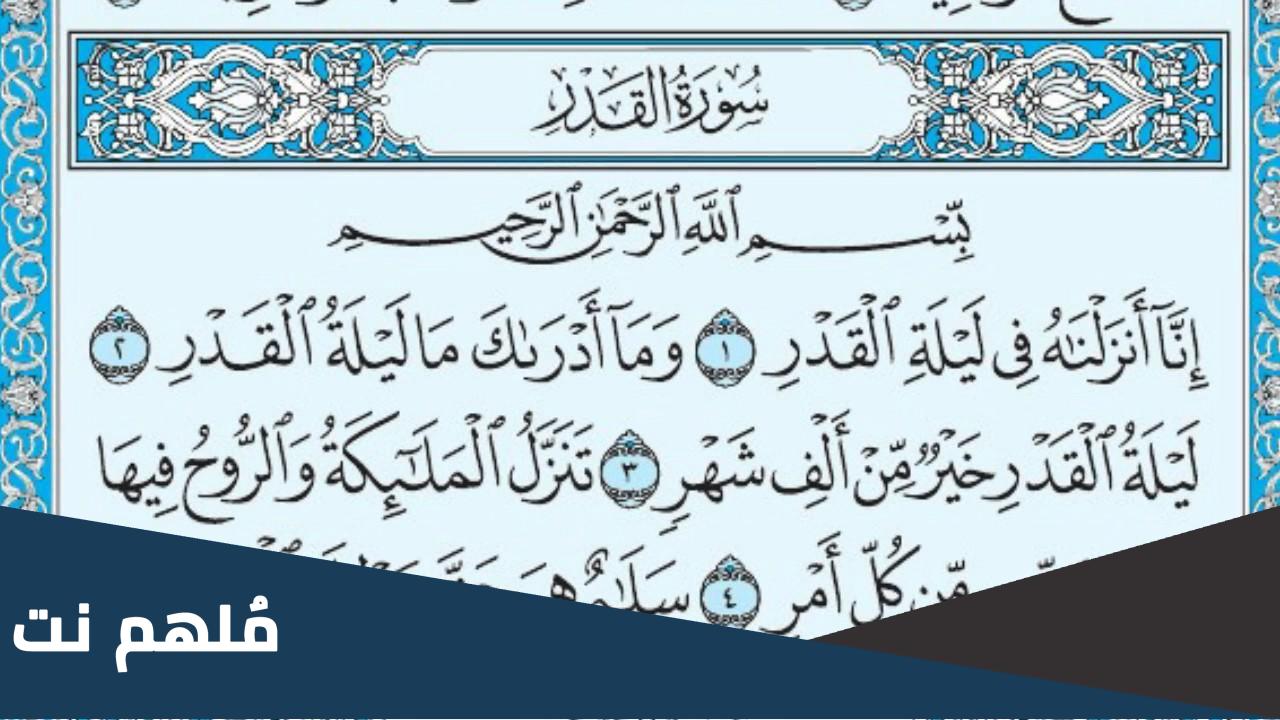 سُورَةُ القَدْرِ
بِّسْمِ ٱللَّهِ ٱلرَّحْمَٰنِ ٱلرَّحِيمِ
إِنَّآ أَنزَلْنَٰهُ فِى لَيْلَةِ ٱلْقَدْرِ ١ وَمَآ أَدْرَىٰكَ مَا لَيْلَةُ ٱلْقَدْرِ ٢
لَيْلَةُ ٱلْقَدْرِ خَيْرٌ مِّنْ أَلْفِ شَهْرٍ ٣ تَنَزَّلُ ٱلْمَلَٰٓئِكَةُ وَٱلرُّوحُ فِيهَا
مِّن كُلِّ أَمْرٍ ٤ سَلَٰمٌ هِىَ
مُلهم نت